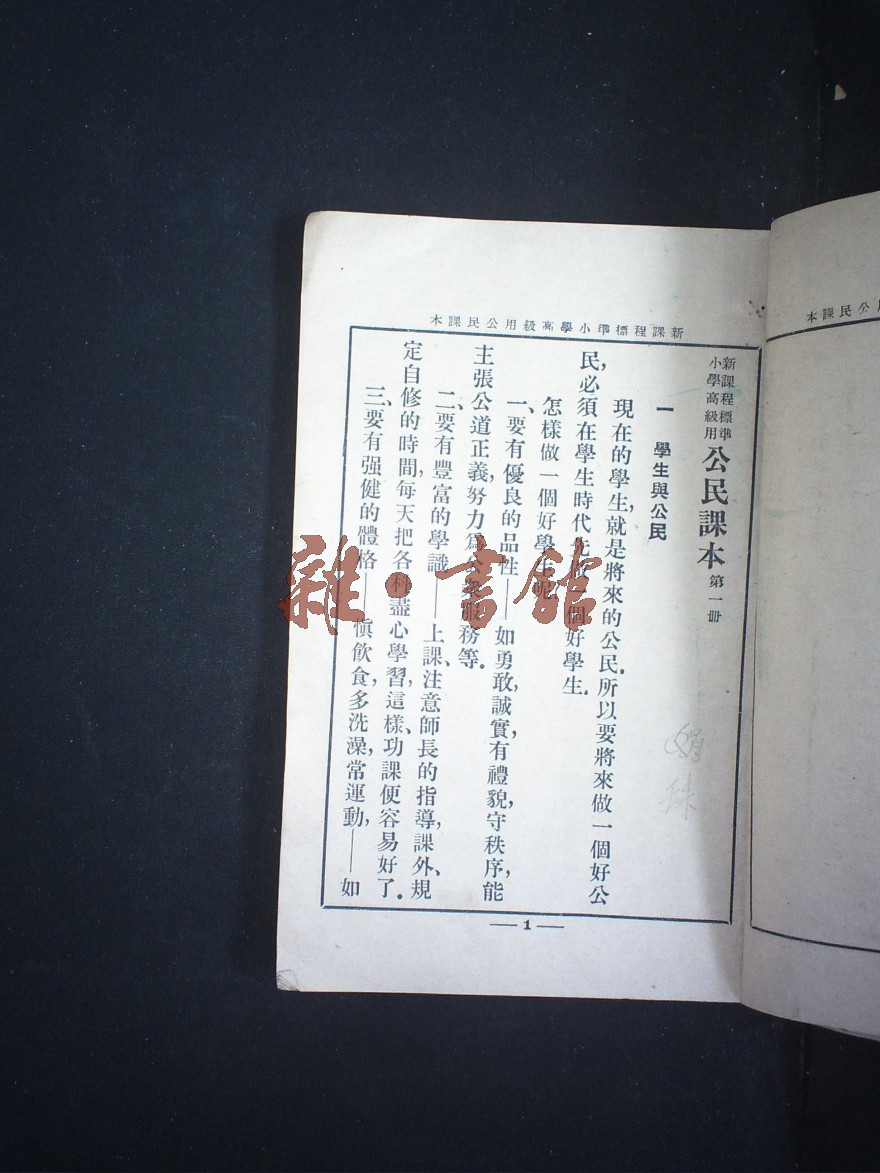 新課程標準小學高級用公民課本
新課程標準
小學高級用
公民課本 第一册
一 學生與公民
現在的學生,就是將來的公民.所以要將來做一個好公
民,必須在學生時代先做一個好學生.
怎樣做一個好學生呢
一、要有優良的品性——如勇敢,誠實,有禮貌,守秩序,能
主張公道正義,努力爲公衆服務等.
二、要有豐富的學識——上課、注意師長的指導,課外、規
定自修的時間,每天把各科盡心學習,這樣、功課便容易好了.
三、要有强健的體格——愼飲食,多洗澡,常運動,——如
— 1 —
娟
珠
公民課本
雜·書館